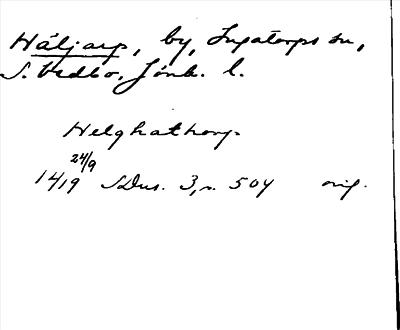 Häljarp, by, Ingatorps sn,
S. Vedbo, Jönk. l.
Helghathorp
24/9
1419 SDns. 3, s. 504 orig.